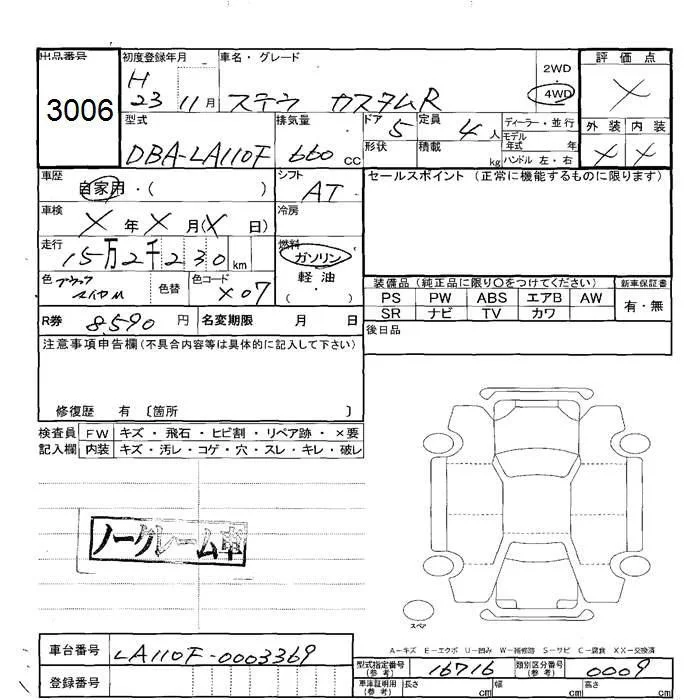 出品番号 初度登録年月 車名・グレード 評価点
3006 H 23 11月 ステラ カスタムR 2WD 4WD ×
型式 排気量 ドア 定員 ディーラー・並行 外装 内装
DBA-LA110F 660cc 5 4人 モデル年式 年 × ×
形状 積載 kg ハンドル 左・右
車歴 自家用・( ) シフト AT セールスポイント (正常に機能するものに限ります)
車検 × 年 × 月(× 日) 冷房
走行 15万2千230km 燃料 ガソリン
軽油
( ・ )
色 マイカM 色替 色コード X07
装備品 (純正品に限り○をつけてください) 新車保証書
PS PW ABS エアB AW 有・無
SR ナビ TV カワ
R券 8,590 円 名変期限 月 日 後日品
注意事項申告欄(不具合内容等は具体的に記入して下さい)
修復歴 有 〔箇所 〕
検査員 FW キズ・飛石・ヒビ割・リペア跡・×要
記入欄 内装 キズ・汚レ・コゲ・穴・スレ・キレ・破レ
ノークレーム車
スペア
A-キズ E-エクボ U-凹み W-補修跡 S-サビ C-腐食 XX-交換済
車台番号 LA110F-0003369
型式指定番号(参考) 16716 類別区分番号(参考) 0009
登録番号
車庫証明用(参考) 長さ cm 幅 cm 高さ cm